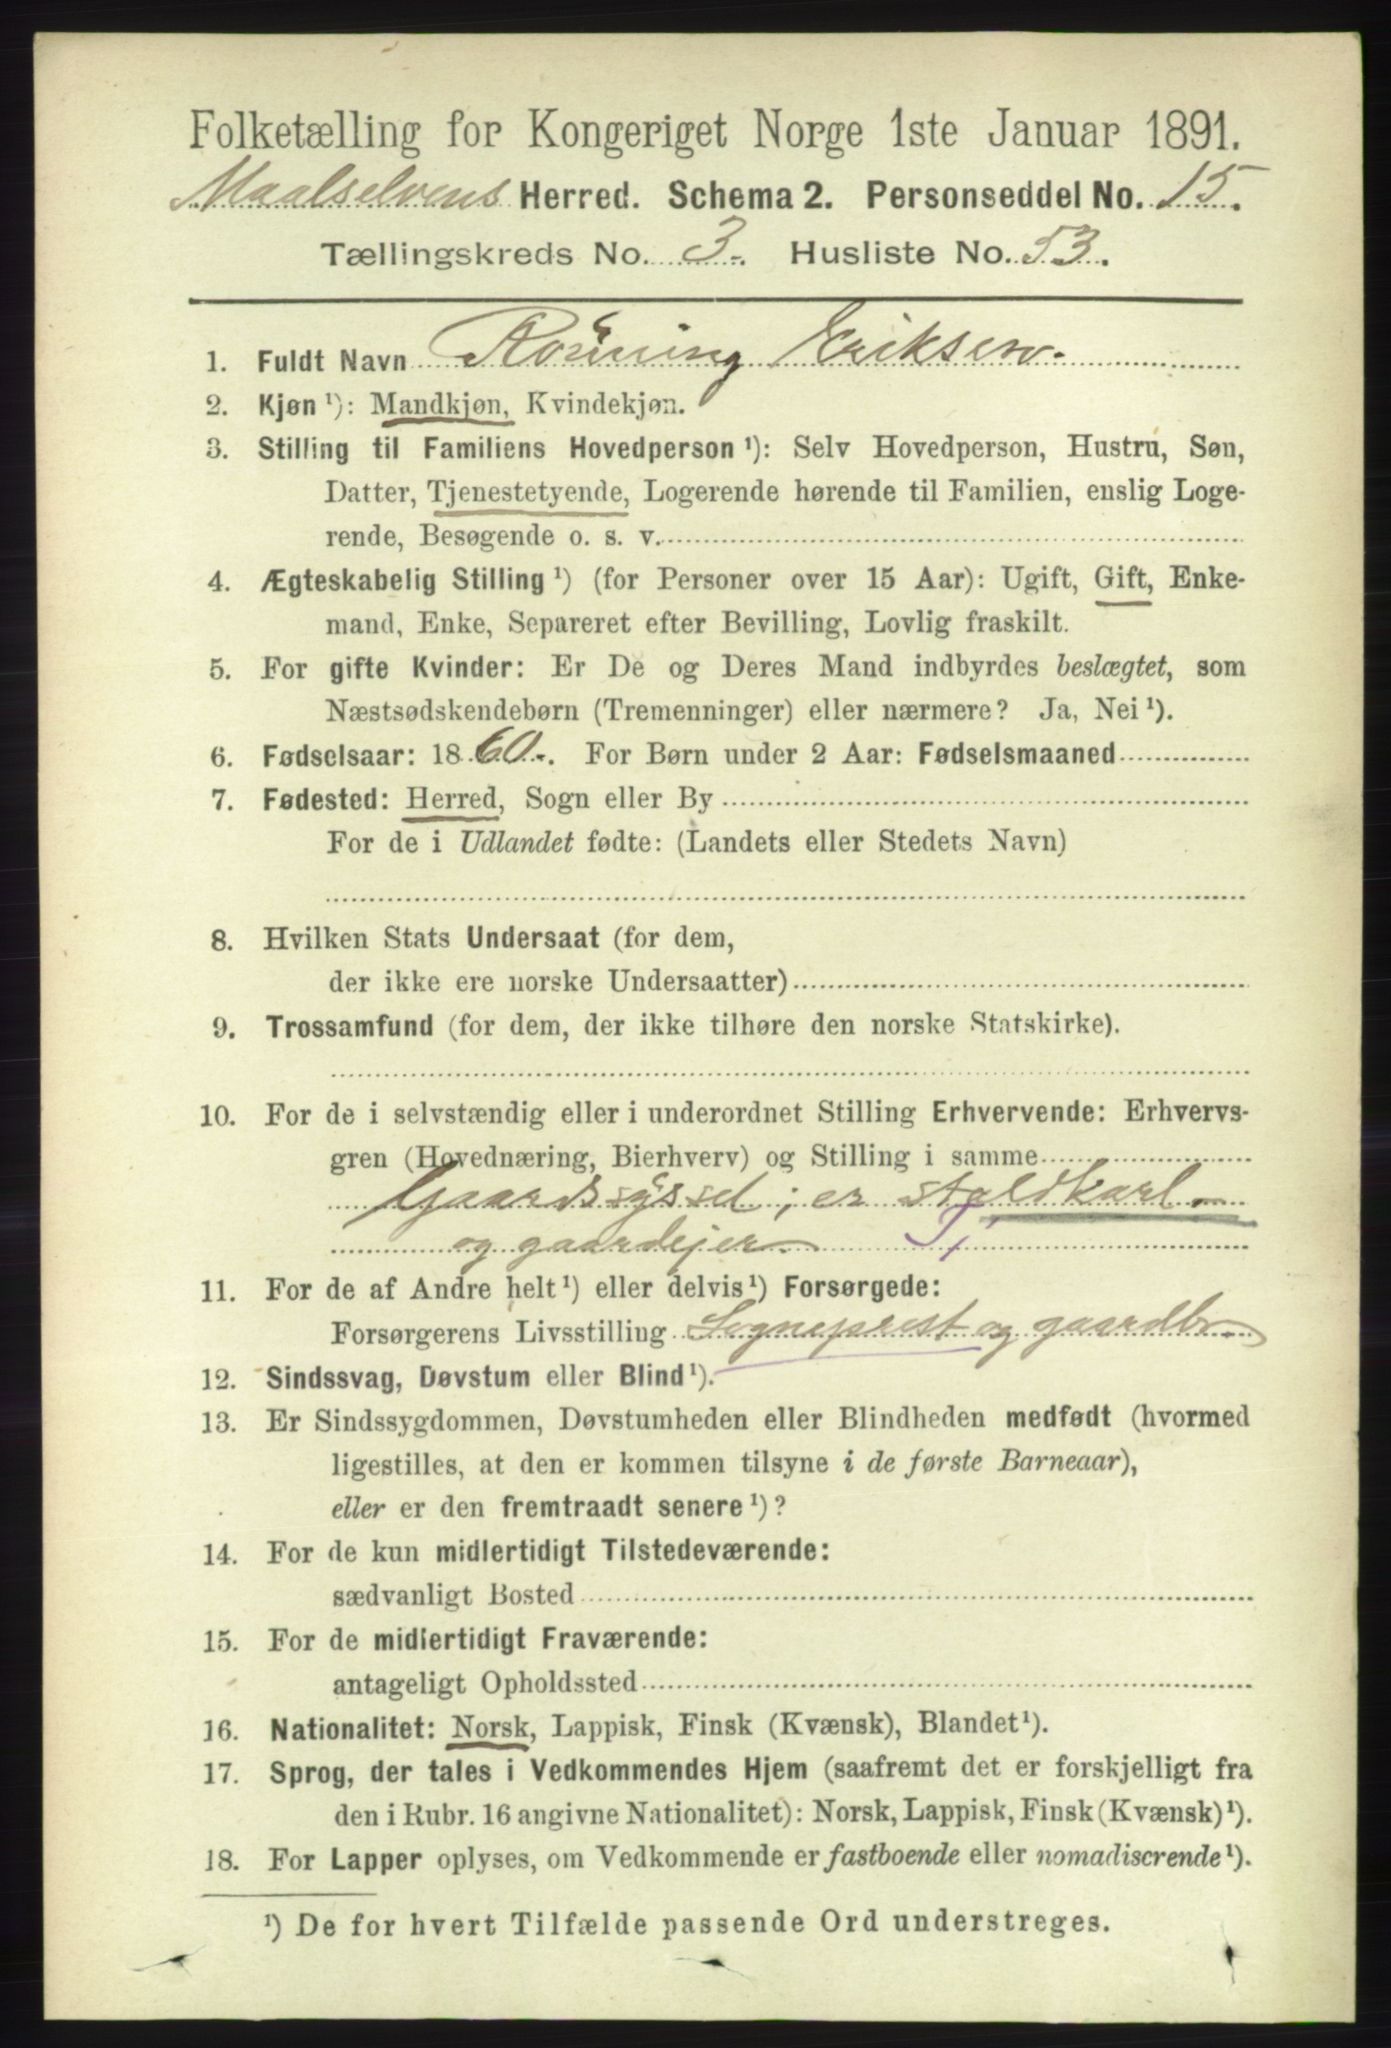 Folketælling for Kongeriget Norge 1ste Januar 1891.
Maalselvens Herred. Schema 2. Personseddel No. 15.
Tællingskreds No. 3. Husliste No. 53.
1. Fuldt Navn Rönning Eriksen.
2. Kjøn ¹): Mandkjøn, Kvindekjøn.
3. Stilling til Familiens Hovedperson ¹): Selv Hovedperson, Hustru, Søn,
Datter, Tjenestetyende, Logerende hørende til Familien, enslig Loge-
rende, Besøgende o. s. v.
4. Ægteskabelig Stilling ¹) (for Personer over 15 Aar): Ugift, Gift, Enke-
mand, Enke, Separeret efter Bevilling, Lovlig fraskilt.
5. For gifte Kvinder: Er De og Deres Mand indbyrdes beslægtet, som
Næstsødskendebørn (Tremenninger) eller nærmere? Ja, Nei ¹).
6. Fødselsaar: 1860. For Børn under 2 Aar: Fødselsmaaned
7. Fødested: Herred, Sogn eller By
For de i Udlandet fødte: (Landets eller Stedets Navn)
8. Hvilken Stats Undersaat (for dem,
der ikke ere norske Undersaatter)
9. Trossamfund (for dem, der ikke tilhøre den norske Statskirke).
10. For de i selvstændig eller i underordnet Stilling Erhvervende: Erhvervs-
gren (Hovednæring, Bierhverv) og Stilling i samme
Gaardssyssel; er staldkarl.
og gaardejer. T,
11. For de af Andre helt ¹) eller delvis ¹) Forsørgede:
Forsørgerens Livsstilling Sogneprest og gaardbr.
12. Sindssvag, Døvstum eller Blind ¹).
13. Er Sindssygdommen, Døvstumheden eller Blindheden medfødt (hvormed
ligestilles, at den er kommen tilsyne i de første Barneaar),
eller er den fremtraadt senere ¹)?
14. For de kun midlertidigt Tilstedeværende:
sædvanligt Bosted
15. For de midlertidigt Fraværende:
antageligt Opholdssted
16. Nationalitet: Norsk, Lappisk, Finsk (Kvænsk), Blandet ¹).
17. Sprog, der tales i Vedkommendes Hjem (saafremt det er forskjelligt fra
den i Rubr. 16 angivne Nationalitet): Norsk, Lappisk, Finsk (Kvænsk) ¹).
18. For Lapper oplyses, om Vedkommende er fastboende eller nomadiserende ¹).
¹) De for hvert Tilfælde passende Ord understreges.